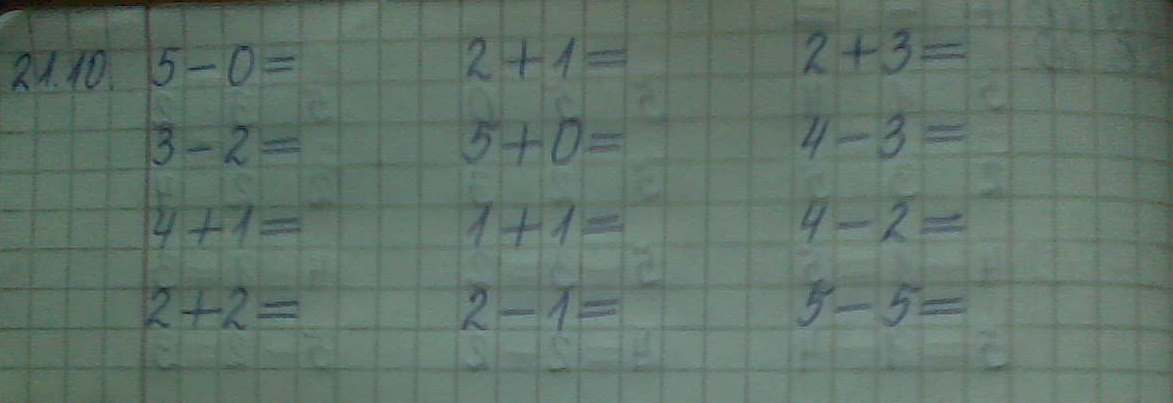 21.10. 5-0= 2+1= 2+3=
3-2= 5+0= 4-3=
4+1= 1+1= 4-2=
2+2= 2-1= 5-5=